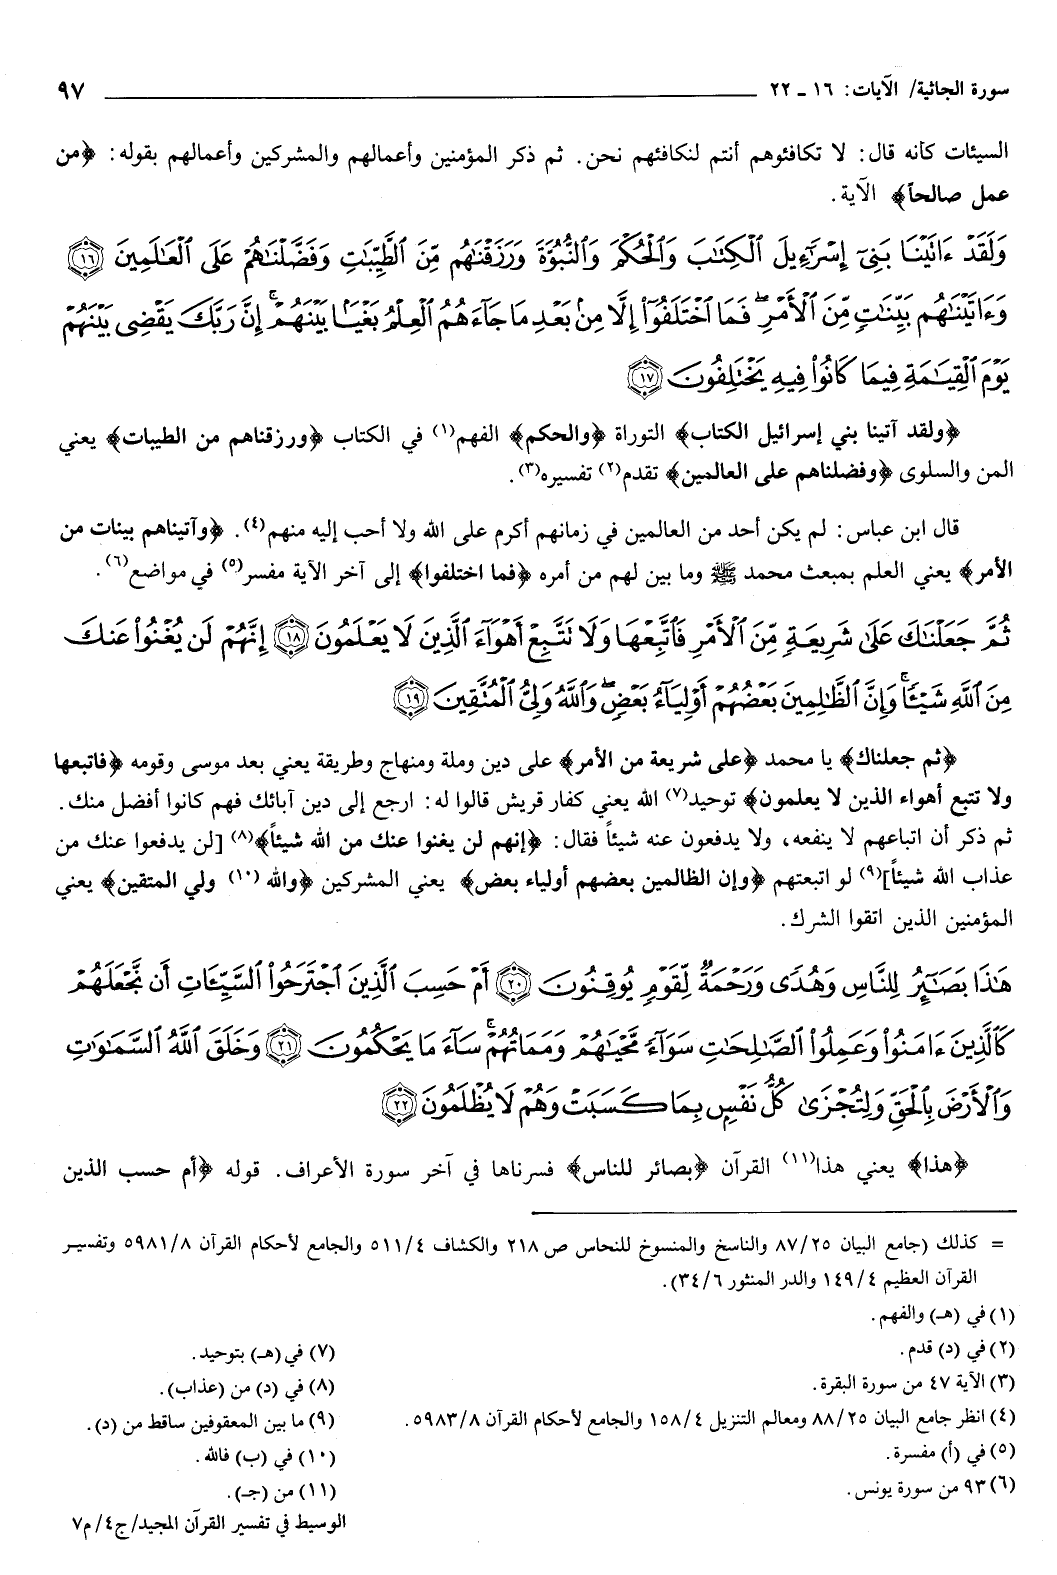 سورة الجاثية/ الآيات: ١٦ ـ ٢٢ ٩٧
السيئات كأنه قال: لا تكافئوهم أنتم لنكافئهم نحن. ثم ذكر المؤمنين وأعمالهم والمشركين وأعمالهم بقوله: ﴿من
عمل صالحاً﴾ الآية.
وَلَقَدْ ءَاتَيْنَا بَنِىٓ إِسْرَٰٓءِيلَ ٱلْكِتَٰبَ وَٱلْحُكْمَ وَٱلنُّبُوَّةَ وَرَزَقْنَٰهُم مِّنَ ٱلطَّيِّبَٰتِ وَفَضَّلْنَٰهُمْ عَلَى ٱلْعَٰلَمِينَ ﴿١٦﴾
وَءَاتَيْنَٰهُم بَيِّنَٰتٍ مِّنَ ٱلْأَمْرِۖ فَمَا ٱخْتَلَفُوٓا۟ إِلَّا مِنۢ بَعْدِ مَا جَآءَهُمُ ٱلْعِلْمُ بَغْيًۢا بَيْنَهُمْۚ إِنَّ رَبَّكَ يَقْضِى بَيْنَهُمْ
يَوْمَ ٱلْقِيَٰمَةِ فِيمَا كَانُوا۟ فِيهِ يَخْتَلِفُونَ ﴿١٧﴾
﴿ولقد آتينا بني إسرائيل الكتاب﴾ التوراة ﴿والحكم﴾ الفهم(١) في الكتاب ﴿ورزقناهم من الطيبات﴾ يعني
المن والسلوى ﴿وفضلناهم على العالمين﴾ تقدم(٢) تفسيره(٣).
قال ابن عباس: لم يكن أحد من العالمين في زمانهم أكرم على الله ولا أحب إليه منهم(٤). ﴿وآتيناهم بينات من
الأمر﴾ يعني العلم بمبعث محمد ﷺ وما بين لهم من أمره ﴿فما اختلفوا﴾ إلى آخر الآية مفسر(٥) في مواضع(٦).
ثُمَّ جَعَلْنَٰكَ عَلَىٰ شَرِيعَةٍ مِّنَ ٱلْأَمْرِ فَٱتَّبِعْهَا وَلَا تَتَّبِعْ أَهْوَآءَ ٱلَّذِينَ لَا يَعْلَمُونَ ﴿١٨﴾ إِنَّهُمْ لَن يُغْنُوا۟ عَنكَ
مِنَ ٱللَّهِ شَيْـًٔاۚ وَإِنَّ ٱلظَّٰلِمِينَ بَعْضُهُمْ أَوْلِيَآءُ بَعْضٍۖ وَٱللَّهُ وَلِىُّ ٱلْمُتَّقِينَ ﴿١٩﴾
﴿ثم جعلناك﴾ يا محمد ﴿على شريعة من الأمر﴾ على دين وملة ومنهاج وطريقة يعني بعد موسى وقومه ﴿فاتبعها
ولا تتبع أهواء الذين لا يعلمون﴾ توحيد(٧) الله يعني كفار قريش قالوا له: ارجع إلى دين آبائك فهم كانوا أفضل منك.
ثم ذكر أن اتباعهم لا ينفعه، ولا يدفعون عنه شيئاً فقال: ﴿إنهم لن يغنوا عنك من الله شيئاً﴾(٨) [لن يدفعوا عنك من
عذاب الله شيئاً](٩) لو اتبعتهم ﴿وإن الظالمين بعضهم أولياء بعض﴾ يعني المشركين ﴿والله (١٠) ولي المتقين﴾ يعني
المؤمنين الذين اتقوا الشرك.
هَٰذَا بَصَٰٓئِرُ لِلنَّاسِ وَهُدًى وَرَحْمَةٌ لِّقَوْمٍ يُوقِنُونَ ﴿٢٠﴾ أَمْ حَسِبَ ٱلَّذِينَ ٱجْتَرَحُوا۟ ٱلسَّيِّـَٔاتِ أَن نَّجْعَلَهُمْ
كَٱلَّذِينَ ءَامَنُوا۟ وَعَمِلُوا۟ ٱلصَّٰلِحَٰتِ سَوَآءً مَّحْيَاهُمْ وَمَمَاتُهُمْۚ سَآءَ مَا يَحْكُمُونَ ﴿٢١﴾ وَخَلَقَ ٱللَّهُ ٱلسَّمَٰوَٰتِ
وَٱلْأَرْضَ بِٱلْحَقِّ وَلِتُجْزَىٰ كُلُّ نَفْسٍۭ بِمَا كَسَبَتْ وَهُمْ لَا يُظْلَمُونَ ﴿٢٢﴾
﴿هذا﴾ يعني هذا(١١) القرآن ﴿بصائر للناس﴾ فسرناها في آخر سورة الأعراف. قوله ﴿أم حسب الذين
= كذلك (جامع البيان ٨٧/٢٥ والناسخ والمنسوخ للنحاس ص ٢١٨ والكشاف ٥١١/٤ والجامع لأحكام القرآن ٥٩٨١/٨ وتفسير
القرآن العظيم ١٤٩/٤ والدر المنثور ٣٤/٦).
(١) في (هـ) والفهم.
(٢) في (د) قدم.
(٣) الآية ٤٧ من سورة البقرة.
(٤) انظر جامع البيان ٨٨/٢٥ ومعالم التنزيل ١٥٨/٤ والجامع لأحكام القرآن ٥٩٨٣/٨.
(٥) في (أ) مفسرة.
(٦) ٩٣ من سورة يونس.
(٧) في (هـ) بتوحيد.
(٨) في (د) من (عذاب).
(٩) ما بين المعقوفين ساقط من (د).
(١٠) في (ب) فالله.
(١١) من (جـ).
الوسيط في تفسير القرآن المجيد/ج٤/م٧